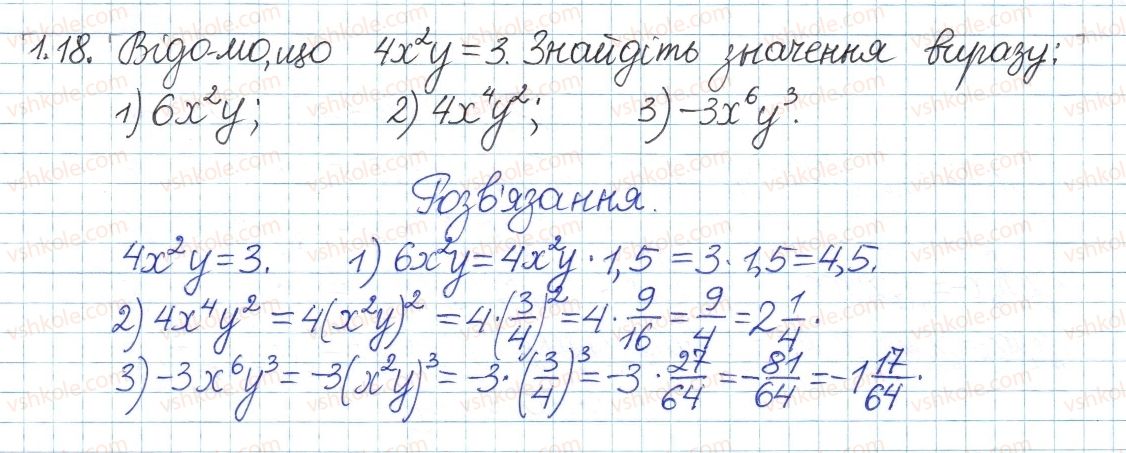 1.18. Відомо, що 4x²y = 3. Знайдіть значення виразу:
1) 6x²y; 2) 4x⁴y²; 3) -3x⁶y³.
Розв'язання.
4x²y = 3. 1) 6x²y = 4x²y · 1,5 = 3 · 1,5 = 4,5.
2) 4x⁴y² = 4(x²y)² = 4 · (3/4)² = 4 · 9/16 = 9/4 = 2 1/4.
3) -3x⁶y³ = -3(x²y)³ = -3 · (3/4)³ = -3 · 27/64 = -81/64 = -1 17/64.